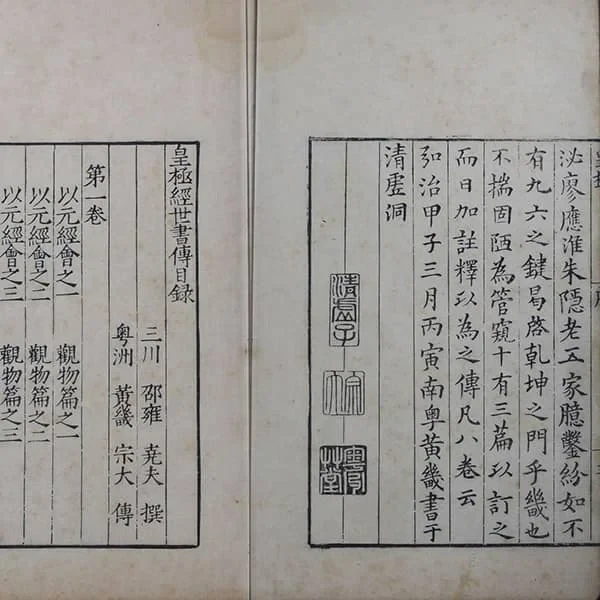 泌廖應淮朱隱老五家臆鑿紛如不
有九六之鍵曷啓乾坤之門乎畿也
不揣固陋為管窺十有三篇以訂之
而日加註釋以為之傳凡八卷云
弘治甲子三月丙寅南粤黃畿書于
清虛洞
清虛子
粵洲草堂
皇極經世書傳目録
三川 邵雍 堯夫 撰
粤洲 黃畿 宗大 傳
第一卷
以元經會之一 觀物篇之一
以元經會之二 觀物篇之二
以元經會之三 觀物篇之三